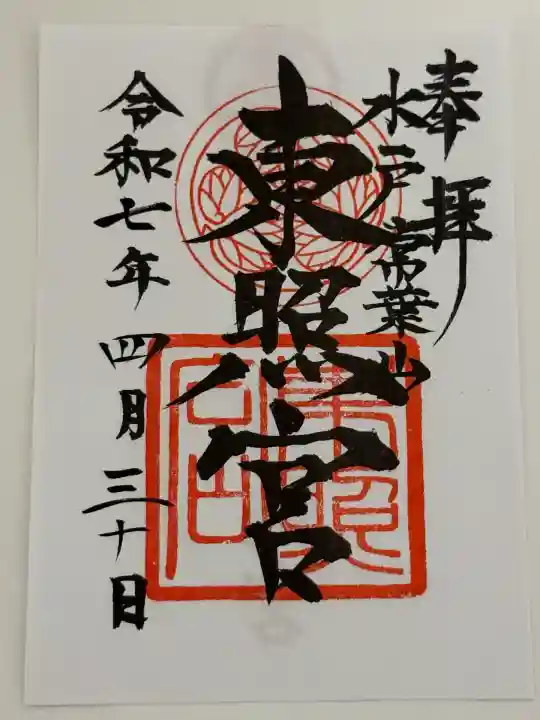 奉拝
水戸常葉山
東照宮
令和七年 四月三十日